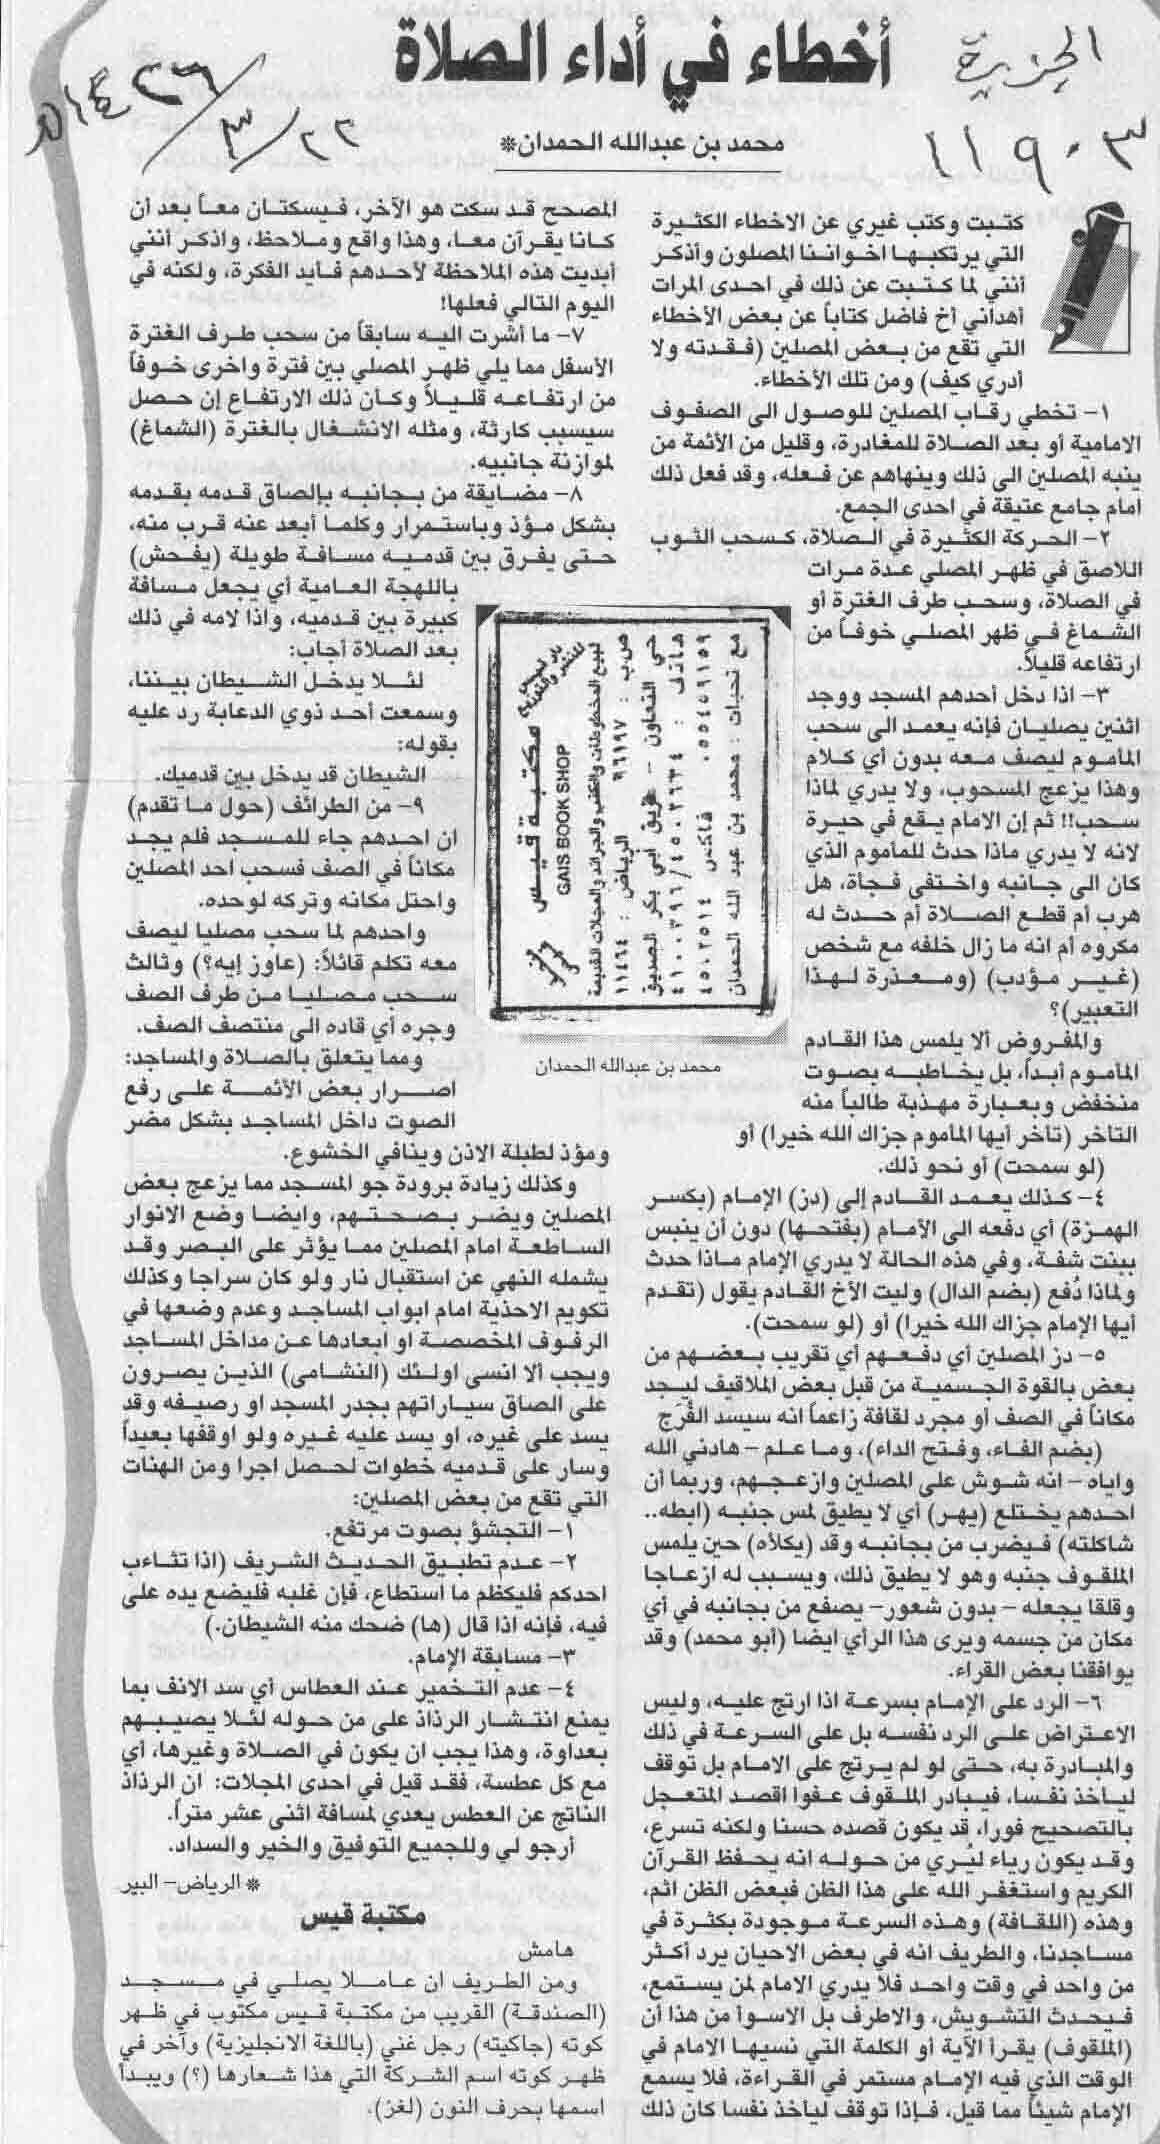 أخطاء في أداء الصلاة
الجزيرة
١١٩٠٣
٢٢/٣/١٤٢٦هـ
محمد بن عبدالله الحمدان*
كتبت وكتب غيري عن الاخطاء الكثيرة
التي يرتكبها اخواننا المصلون وأذكر
أنني لما كتبت عن ذلك في احدى المرات
أهداني أخ فاضل كتاباً عن بعض الأخطاء
التي تقع من بعض المصلين (فقدته ولا
أدري كيف) ومن تلك الأخطاء.
١- تخطي رقاب المصلين للوصول الى الصفوف
الامامية أو بعد الصلاة للمغادرة، وقليل من الأئمة من
ينبه المصلين الى ذلك وينهاهم عن فعله، وقد فعل ذلك
امام جامع عتيقة في احدى الجمع.
٢- الحركة الكثيرة في الصلاة، كسحب الثوب
اللاصق في ظهر المصلي عدة مرات
في الصلاة، وسحب طرف الغترة أو
الشماغ في ظهر المصلي خوفاً من
ارتفاعه قليلاً.
٣- اذا دخل أحدهم المسجد ووجد
اثنين يصليان فإنه يعمد الى سحب
المأموم ليصف معه بدون أي كلام
وهذا يزعج المسحوب، ولا يدري لماذا
سحب!! ثم إن الامام يقع في حيرة
لانه لا يدري ماذا حدث للمأموم الذي
كان الى جانبه واختفى فجأة، هل
هرب أم قطع الصلاة أم حدث له
مكروه أم انه ما زال خلفه مع شخص
(غير مؤدب) (ومعذرة لهذا
التعبير)؟
والمفروض ألا يلمس هذا القادم
المأموم أبداً، بل يخاطبه بصوت
منخفض وبعبارة مهذبة طالباً منه
التأخر (تأخر أيها المأموم جزاك الله خيرا) أو
(لو سمحت) أو نحو ذلك.
٤- كذلك يعمد القادم إلى (دز) الإمام (بكسر
الهمزة) أي دفعه الى الأمام (بفتحها) دون أن ينبس
ببنت شفة، وفي هذه الحالة لا يدري الإمام ماذا حدث
ولماذا دُفع (بضم الدال) وليت الأخ القادم يقول (تقدم
أيها الإمام جزاك الله خيرا) أو (لو سمحت).
٥- دز المصلين أي دفعهم أي تقريب بعضهم من
بعض بالقوة الجسمية من قبل بعض الملاقيف ليجد
مكاناً في الصف أو مجرد لقافة زاعماً انه سيسد الفُرَج
(بضم الفاء، وفتح الداء)، وما علم - هادني الله
واياه - انه شوش على المصلين وازعجهم، وربما أن
احدهم يختلع (يهر) أي لا يطيق لمس جنبه (ابطه..
شاكلته) فيضرب من بجانبه وقد (يكلأه) حين يلمس
الملقوف جنبه وهو لا يطيق ذلك، ويسبب له ازعاجا
وقلقا يجعله - بدون شعور- يصفع من بجانبه في أي
مكان من جسمه ويرى هذا الرأي ايضا (أبو محمد) وقد
يوافقنا بعض القراء.
٦- الرد على الإمام بسرعة اذا ارتج عليه، وليس
الاعتراض على الرد نفسه بل على السرعة في ذلك
والمبادرة به، حتى لو لم يرتج على الامام بل توقف
ليأخذ نفسا، فيبادر الملقوف عفوا اقصد المتعجل
بالتصحيح فورا، قد يكون قصده حسنا ولكنه تسرع،
وقد يكون رياء ليُري من حوله انه يحفظ القرآن
الكريم واستغفر الله على هذا الظن فبعض الظن اثم،
وهذه (اللقافة) وهذه السرعة موجودة بكثرة في
مساجدنا، والطريف انه في بعض الاحيان يرد أكثر
من واحد في وقت واحد فلا يدري الامام لمن يستمع،
فيحدث التشويش، والاطرف بل الاسوأ من هذا أن
(الملقوف) يقرأ الآية أو الكلمة التي نسيها الامام في
الوقت الذي فيه الإمام مستمر في القراءة، فلا يسمع
الإمام شيئاً مما قيل، فإذا توقف ليأخذ نفسا كان ذلك
المصحح قد سكت هو الآخر، فيسكتان معاً بعد أن
كانا يقرآن معا، وهذا واقع وملاحظ، واذكر أنني
أبديت هذه الملاحظة لأحدهم فأيد الفكرة، ولكنه في
اليوم التالي فعلها!
٧- ما أشرت اليه سابقاً من سحب طرف الغترة
الأسفل مما يلي ظهر المصلي بين فترة واخرى خوفاً
من ارتفاعه قليلاً وكأن ذلك الارتفاع إن حصل
سيسبب كارثة، ومثله الانشغال بالغترة (الشماغ)
لموازنة جانبيه.
٨- مضايقة من بجانبه بإلصاق قدمه بقدمه
بشكل مؤذ وباستمرار وكلما أبعد عنه قرب منه،
حتى يفرق بين قدميه مسافة طويلة (يفحش)
باللهجة العامية أي يجعل مسافة
كبيرة بين قدميه، واذا لامه في ذلك
بعد الصلاة أجاب:
لئلا يدخل الشيطان بيننا،
وسمعت أحد ذوي الدعابة رد عليه
بقوله:
الشيطان قد يدخل بين قدميك.
٩- من الطرائف (حول ما تقدم)
ان احدهم جاء للمسجد فلم يجد
مكاناً في الصف فسحب احد المصلين
واحتل مكانه وتركه لوحده.
واحدهم لما سحب مصليا ليصف
معه تكلم قائلاً: (عاوز إيه؟) وثالث
سحب مصليا من طرف الصف
وجره أي قاده الى منتصف الصف.
ومما يتعلق بالصلاة والمساجد:
اصرار بعض الأئمة على رفع
الصوت داخل المساجد بشكل مضر
ومؤذ لطبلة الاذن وينافي الخشوع.
وكذلك زيادة برودة جو المسجد مما يزعج بعض
المصلين ويضر بصحتهم، وايضا وضع الانوار
الساطعة امام المصلين مما يؤثر على البصر وقد
يشمله النهي عن استقبال نار ولو كان سراجا وكذلك
تكويم الاحذية امام ابواب المساجد وعدم وضعها في
الرفوف المخصصة او ابعادها عن مداخل المساجد
ويجب ألا انسى اولئك (النشامى) الذين يصرون
على الصاق سياراتهم بجدر المسجد او رصيفه وقد
يسد على غيره، او يسد عليه غيره ولو اوقفها بعيداً
وسار على قدميه خطوات لحصل اجرا ومن الهنات
التي تقع من بعض المصلين:
١- التجشؤ بصوت مرتفع.
٢- عدم تطبيق الحديث الشريف (اذا تثاءب
احدكم فليكظم ما استطاع، فإن غلبه فليضع يده على
فيه، فإنه اذا قال (ها) ضحك منه الشيطان.)
٣- مسابقة الإمام.
٤- عدم التخمير عند العطاس أي سد الانف بما
يمنع انتشار الرذاذ على من حوله لئلا يصيبهم
بعداوة، وهذا يجب ان يكون في الصلاة وغيرها، أي
مع كل عطسة، فقد قيل في احدى المجلات: ان الرذاذ
الناتج عن العطس يعدي لمسافة اثنى عشر متراً.
أرجو لي وللجميع التوفيق والخير والسداد.
* الرياض- البير
مكتبة قيس
هامش
ومن الطريف ان عاملا يصلي في مسجد
(الصندقة) القريب من مكتبة قيس مكتوب في ظهر
كوته (جاكيته) رجل غني (باللغة الانجليزية) وآخر في
ظهر كوته اسم الشركة التي هذا شعارها (؟) ويبدأ
اسمها بحرف النون (لغز).
مكتبة قيس
GAIS BOOK SHOP
لبيع المخطوطات والكتب والجرائد والمجلات القديمة
ص.ب : ٩٦١٩٧ الرياض : ١١٤٦٤
حي التعاون - طريق أبي بكر الصديق
هاتف : ٤٥٠٢٦٣٤ / ٤١٠٠٣٩٦
٠٥٥٤٥٩١٥٩ فاكس ٤٥٠٢٥١٤
مع تحيات : محمد بن عبد الله الحمدان
محمد بن عبدالله الحمدان